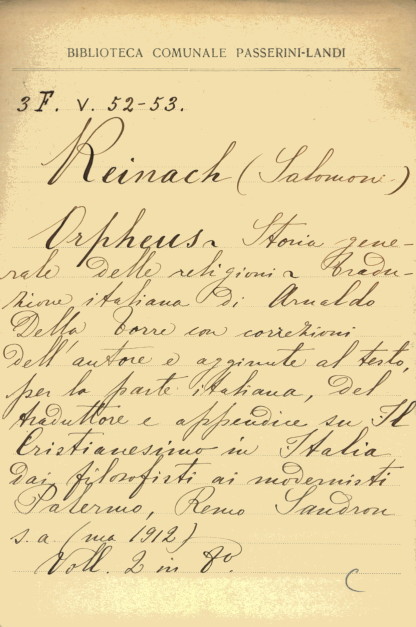 BIBLIOTECA COMUNALE PASSERINI-LANDI
3 F. V. 52-53.
Reinach (Salomon)
Orpheus ~ Storia gene-
rale delle religioni ~ Tradu-
zione italiana di Arnaldo
Della Torre con correzioni
dell'autore e aggiunte al testo,
per la parte italiana, del
traduttore e appendice su Il
Cristianesimo in Italia
dai filosofisti ai modernisti
Palermo, Remo Sandron
s.a. (ma 1912)
Voll. 2 in 8°.
C